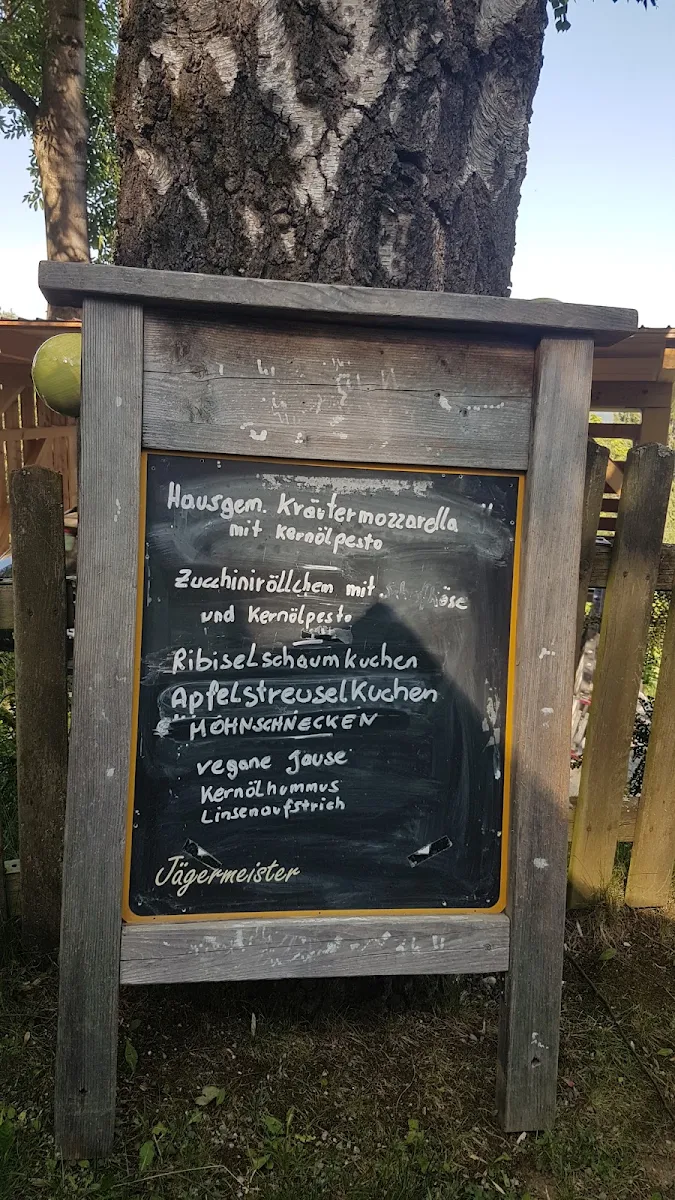 Hausgem. Kräutermozzarella
mit Kernölpesto
Zucchiniröllchem mit
und Kernölpesto
Ribiselschaumkuchen
Apfelstreuselkuchen
MOHNSCHNECKEN
vegane Jause
Kernölhummus
Linsenaufstrich
Jägermeister